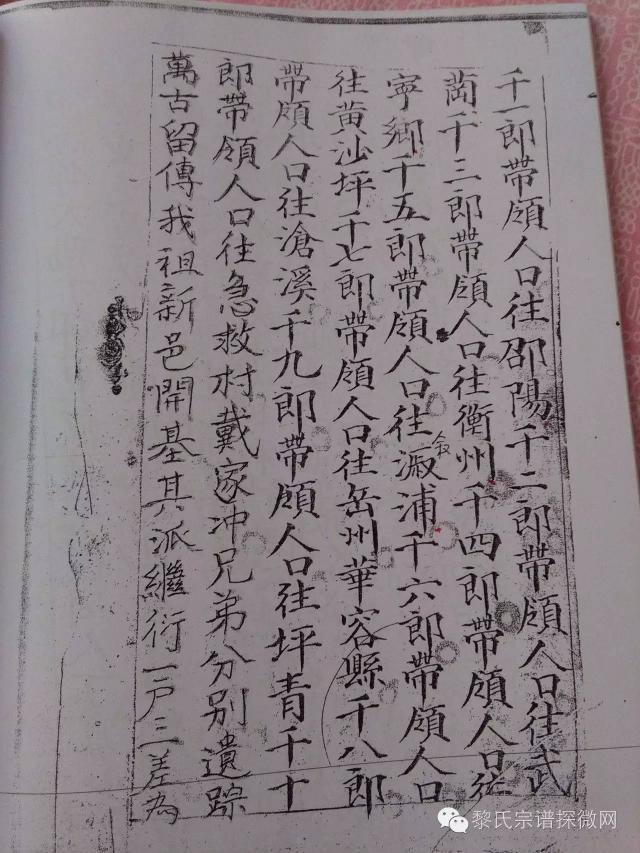 千一郎帶領人口往邵陽千二郎帶領人口往武
岗千三郎帶領人口往衡州千四郎帶領人口往
寧鄉千五郎帶領人口往溆浦千六郎帶領人口
往黄沙坪千七郎帶領人口往岳州華容縣千八郎
帶領人口往滄溪千九郎帶領人口往坪青千十
郎帶領人口往急救村戴家冲兄弟分别遺踪
萬古留傳我祖新邑開基其派繼衍一戸三差為
黎氏宗谱探微网